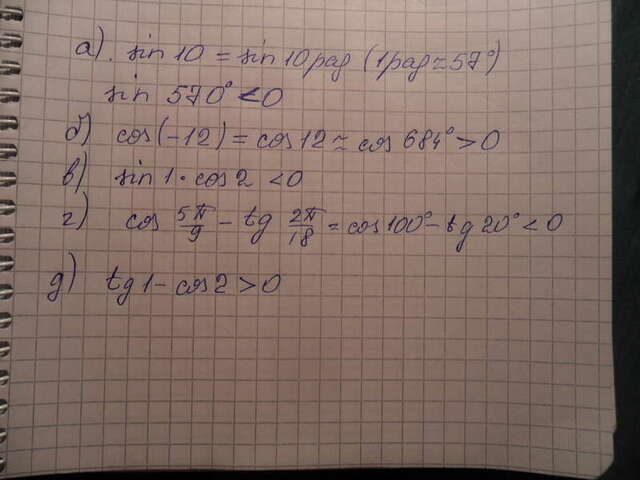 а). sin 10 = sin 10 рад (1 рад ≈ 57°)
sin 570° < 0
б) cos(-12) = cos 12 ≈ cos 684° > 0
в) sin 1 · cos 2 < 0
г) cos 5π/9 - tg 2π/18 = cos 100° - tg 20° < 0
д) tg 1 - cos 2 > 0